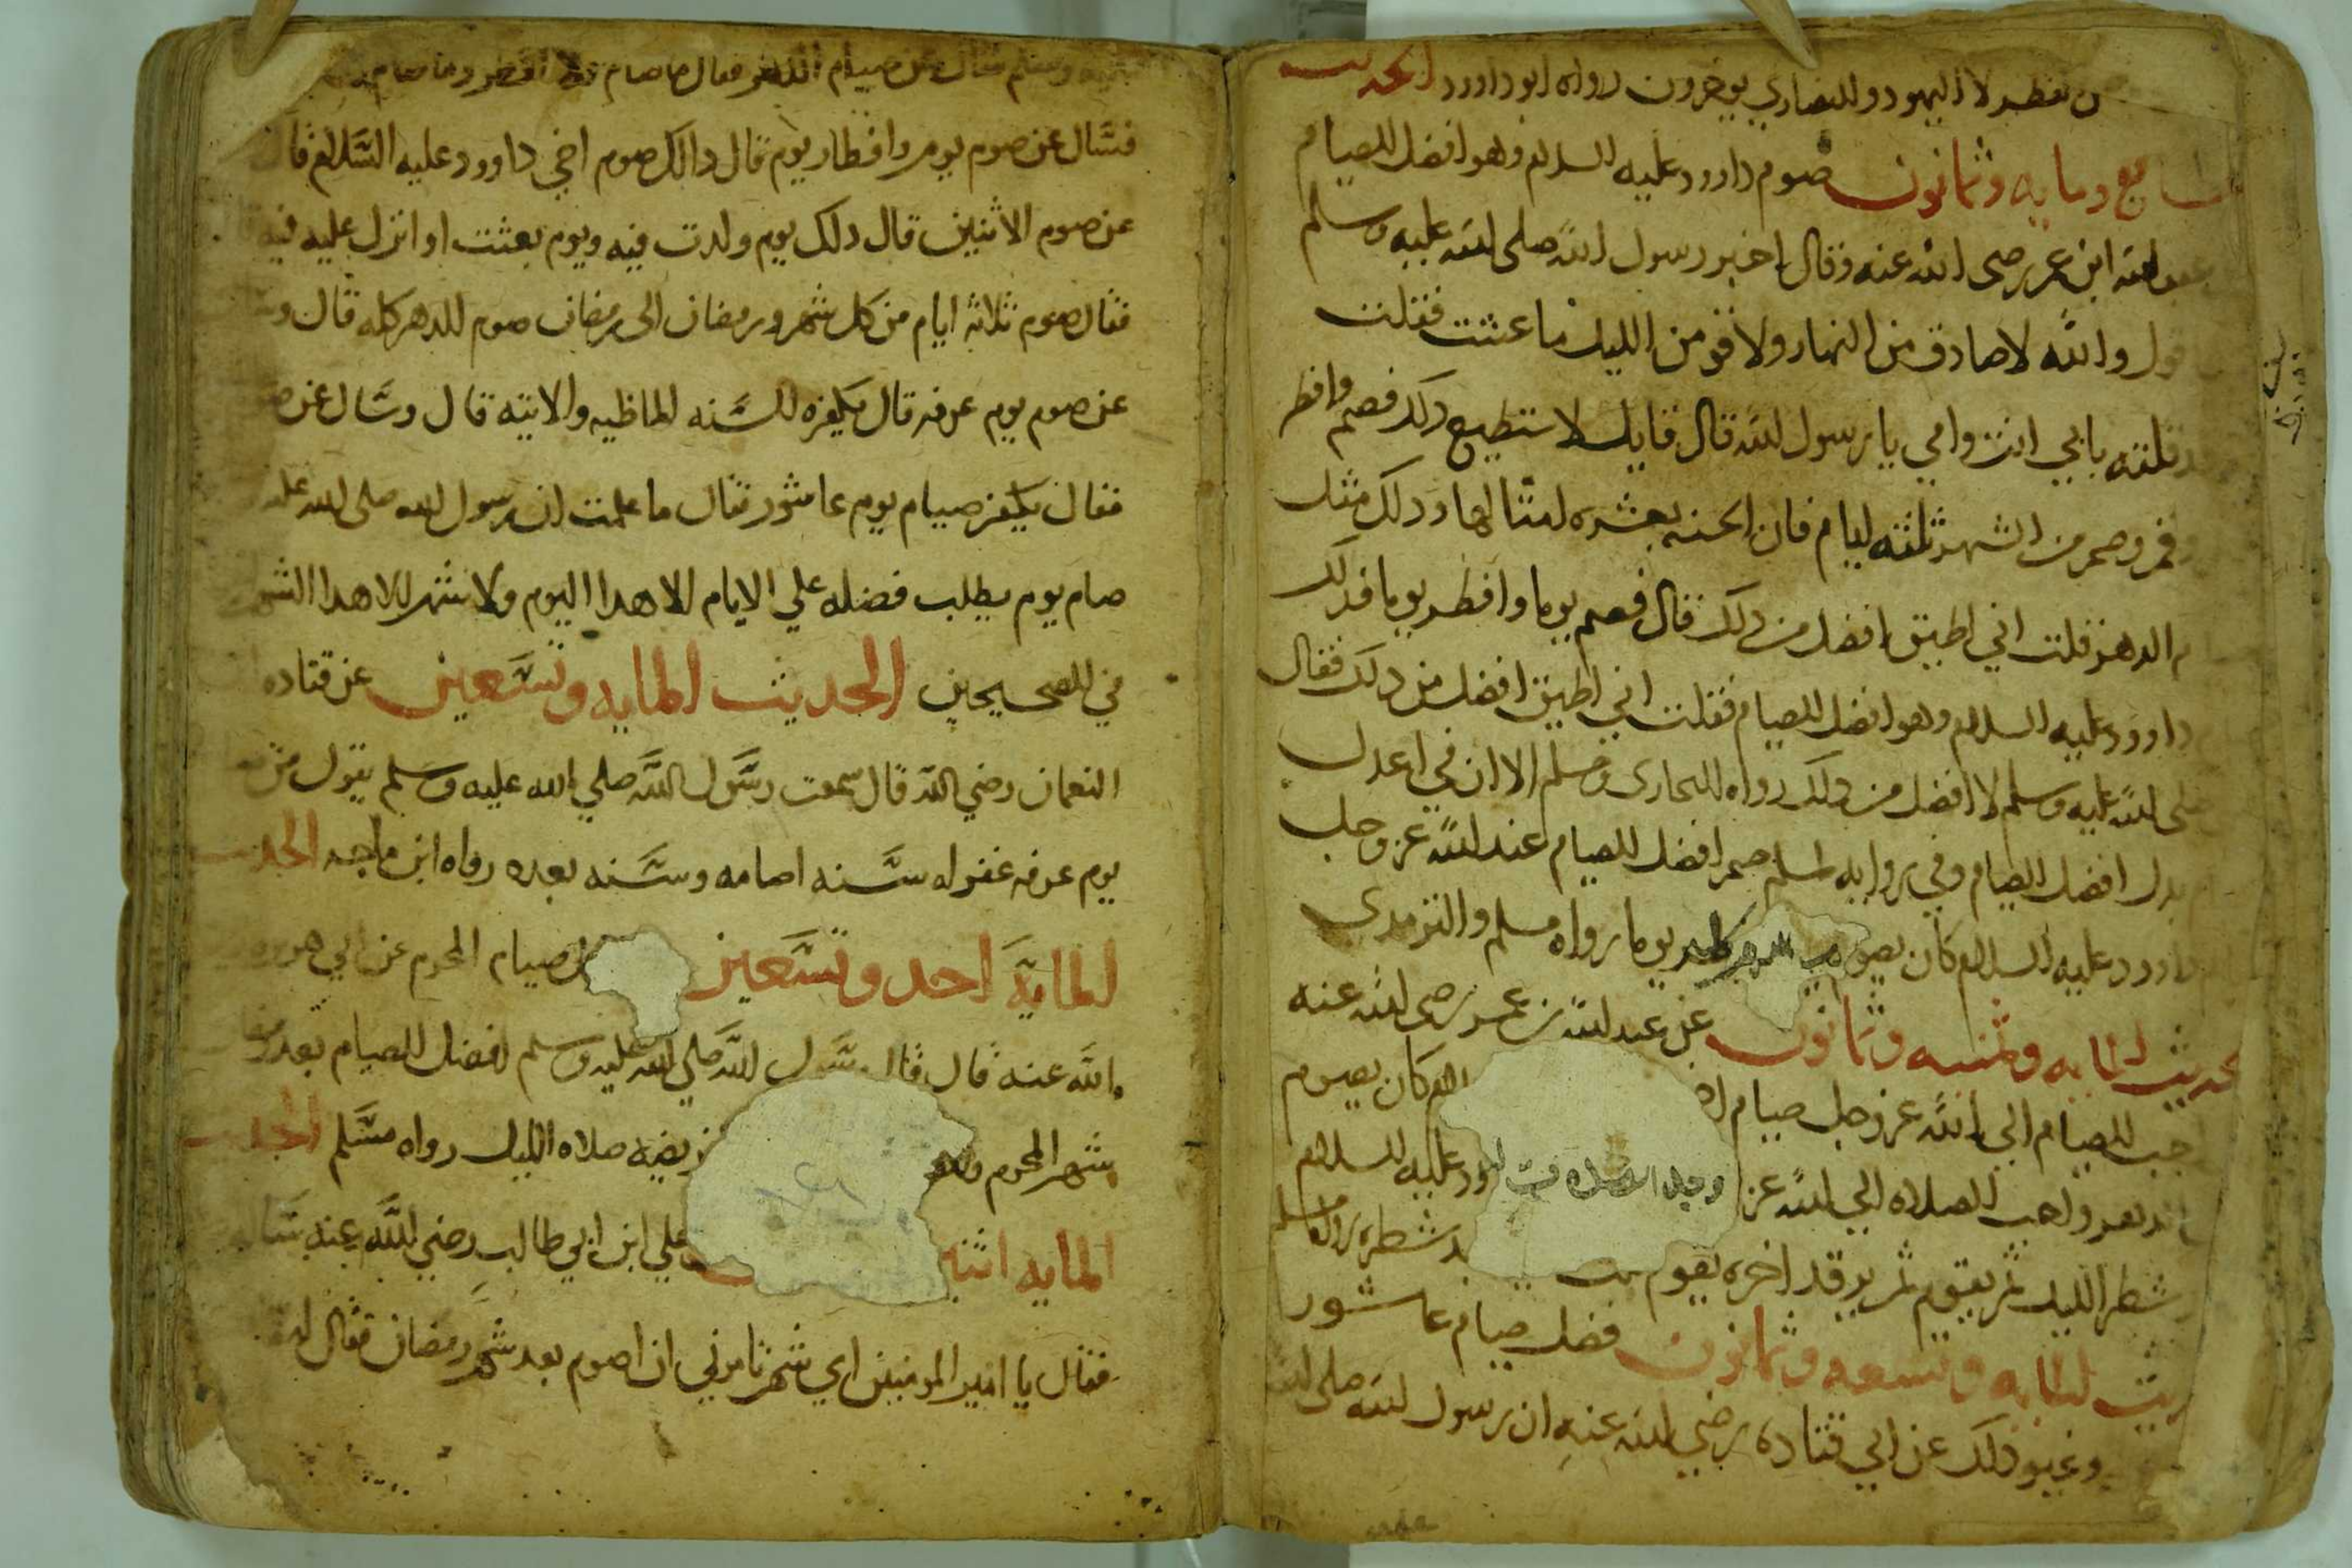 ن نفطر لا اليهود والنصاري يوخرون رواه ابو داوود الحديث
السابع ومايه وثمانون صوم داوود عليه السلام وهو افضل الصيام
عبدالله ابن عمر رضى الله عنه وقال اخبر رسول الله صلى الله عليه وسلم
قول والله لاصادق من النهار ولاقومن الليل ما عشت فقلت
قد قلته بابي انت وامي يا رسول الله قال فايك لا ستطيع ذلك فصم وافطر
وقم وصم من الشهر ثلثه ايام فان الحسنه بعشره امثالها وذلك مثل
م الدهر فقلت اني اطيق افضل من ذلك قال فصم يوما وافطر يوما فذلك
داوود عليه السلام وهو افضل الصيام فقلت اني اطيق افضل من ذلك فقال
صلى الله عليه وسلم لا افضل من ذلك رواه البخارى ومسلم الا ان في اعدل
بدل افضل الصيام وفي روايه لمسلم صم افضل الصيام عند الله عز وجل
داوود عليه السلام كان يصوم يوما رواه مسلم والترمدى
لحديث المايه وثمنيه وثمانون عن عبد الله بن عمر رضى الله عنه
حب الصيام الى الله عز وجل صيام كان يصوم
الدهر واحب الصلاه الي الله عز وجل الصلاه عليه السلام
شطر الليل ثم يقوم ثم يرقد اخره يقوم شطره رواه مسلم
ديث المايه وتسعه وثمانون فضل صيام عاشور
وغيو ذلك عن ابي قتاده رضي الله عنه ان رسول الله صلى الله
وسلم سال عن صيام الدهر فقال ما صام ولا افطر وما صام
فسال عن صوم يوم وافطار يوم قال دالك صوم اخي داوود عليه السلام قال
عن صوم الاثنين قال دلك يوم ولدت فيه ويوم بعثت او انزل عليه فيه
فقال صوم ثلاثه ايام من كل شهر ورمضان الى رمضان صوم الدهر كله قال وس
عن صوم يوم عرفه قال يكفره السنه الماظيه والاتيه قال وسال عن ص
فقال يكفر صيام يوم عاشور فقال ما علمت ان رسول الله صلى الله عليه
صام يوم يطلب فضله علي الايام الا هدا اليوم ولا شهر الا هدا الشهر
في الصحيحين الحديث المايه وتسعين عن قتاده
النعمان رضي الله قال سمعت رسول الله صلي الله عليه وسلم يقول من
يوم عرفه غفر له سنه امامه وسنه بعده رواه ابن ماجه الحديث
المايه احد وتسعين صيام المحرم عن ابي هريره
الله عنه قال قال رسول الله صلي الله عليه وسلم افضل الصيام بعد
شهر المحرم ريضه صلاه الليل رواه مسلم الحديث
المايه اثن علي ابن ابي طالب رضي الله عنه سال
فقال يا امير المومنين اي شهر تامرني ان اصوم بعد شهر رمضان فقال له